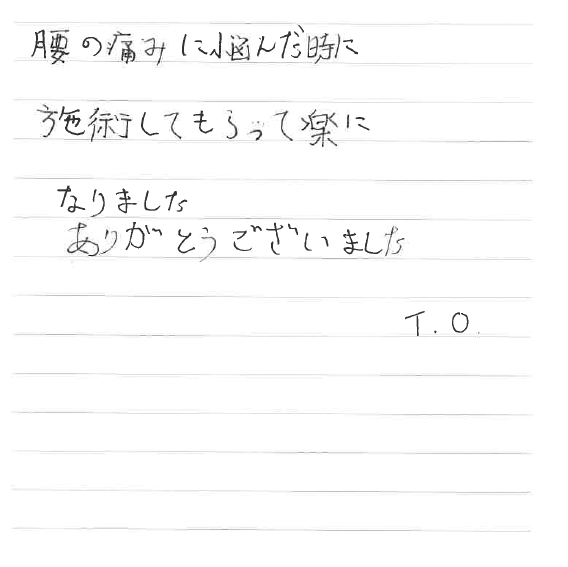 腰の痛みに悩んだ時に
施術してもらって楽に
なりました
ありがとうございました
T.O.